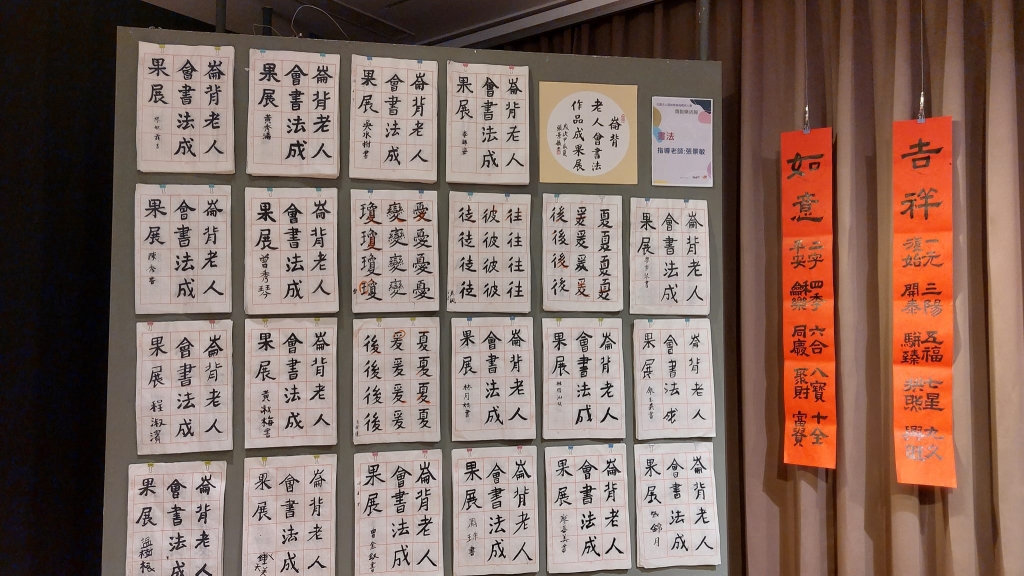 崙背老人
會書法成
果展
崙背老人
會書法成
果展
崙背老人
會書法成
果展
崙背老人
會書法成
果展
崙背
老人會書法
作品成果展
書法
指導老師:張景敏
崙背老人
會書法成
果展
陳秀香
崙背老人
會書法成
果展
曾秀琴
憂憂憂憂
變變變變
瓊瓊瓊瓊
往往往往
彼彼彼彼
徒徒徒徒
夏夏夏夏
爰爰爰爰
後後後後
崙背老人
會書法成
果展
崙背老人
會書法成
果展
程淑濱
崙背老人
會書法成
果展
黃淑梅書
夏夏夏夏
爰爰爰爰
後後後後
崙背老人
會書法成
果展
林月娇書
崙背老人
會書法成
果展
崙背老人
會書法成
果展
崙背老人
會書法成
果展
崙背老人
會書法成
果展
崙背老人
會書法成
果展
崙背老人
會書法成
果展
崙背老人
會書法成
果展
崙背老人
會書法成
果展
如意
二字平安
四季
六合同歲
八寶聚財
十全富貴
吉祥
一元復始
三陽開泰
五福駢臻
七星